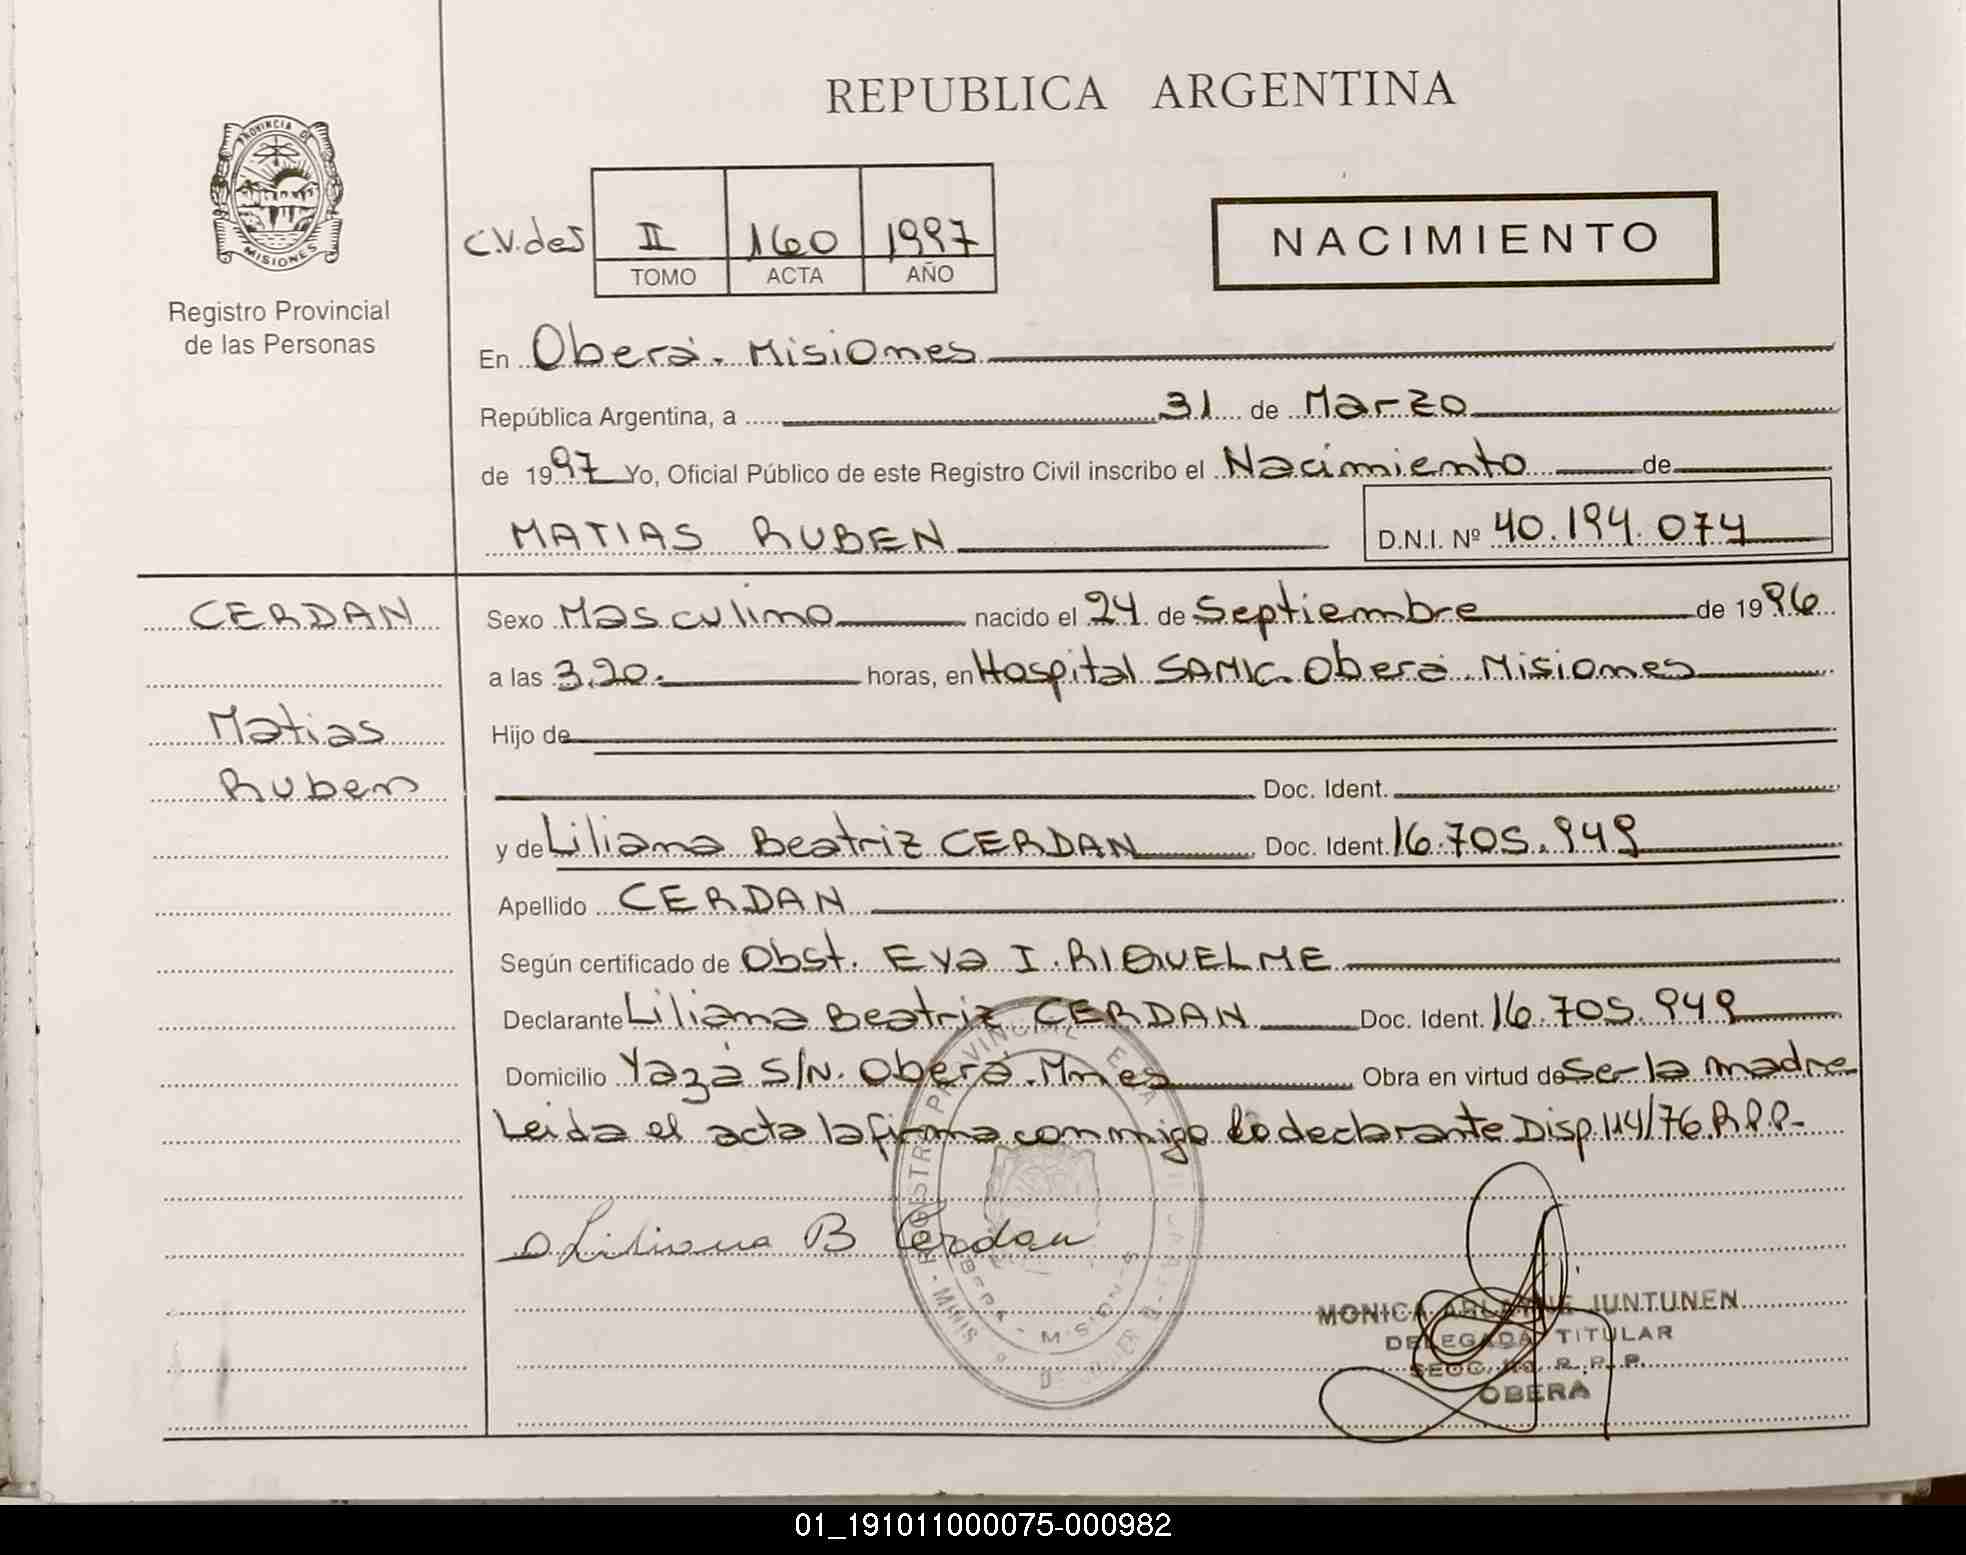 REPUBLICA ARGENTINA
PROVINCIA DE
MISIONES
Registro Provincial
de las Personas
C.V. des II 160 1997
TOMO ACTA AÑO
NACIMIENTO
En Oberá. Misiones
República Argentina, a 31 de Marzo
de 1997 Yo, Oficial Público de este Registro Civil inscribo el Nacimiento de
MATIAS RUBEN D.N.I. Nº 40.194.074
CERDAN
Matias
Ruben
Sexo Masculino nacido el 24 de Septiembre de 1996
a las 3,20. horas, en Hospital SAMIC. Oberá. Misiones
Hijo de
Doc. Ident.
y de Liliana Beatriz CERDAN Doc. Ident. 16.705.949
Apellido CERDAN
Según certificado de Obst. Eva I. RIQUELME
Declarante Liliana Beatriz CERDAN Doc. Ident. 16.705.949
Domicilio Yazá S/N. Oberá. Mnes Obra en virtud de Ser la madre
Leida el acta la firma conmigo la declarante Disp. 114/76.R.P.P.-
Liliana B Cerdan
MONICA JUNTUNEN
DELEGADA TITULAR
R. P. P.
OBERA
01_191011000075-000982